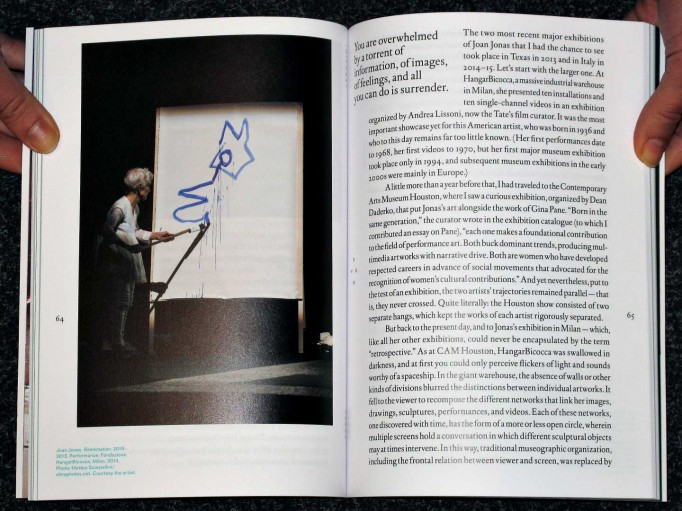 64
Joan Jonas, Reanimation, 2010–
2013. Performance: Fondazione
HangarBicocca, Milan, 2014.
Photo: Moira Ricci
Courtesy the artist.
You are overwhelmed
by a torrent of
information, of images,
of feelings, and all
you can do is surrender.
The two most recent major exhibitions
of Joan Jonas that I had the chance to see
took place in Texas in 2013 and in Italy in
2014–15. Let's start with the larger one. At
HangarBicocca, a massive industrial warehouse
in Milan, she presented ten installations and
ten single-channel videos in an exhibition
organized by Andrea Lissoni, now the Tate's film curator. It was the most
important showcase yet for this American artist, who was born in 1936 and
who to this day remains far too little known. (Her first performances date
to 1968, her first videos to 1970, but her first major museum exhibition
took place only in 1994, and subsequent museum exhibitions in the early
2000s were mainly in Europe.)
A little more than a year before that, I had traveled to the Contemporary
Arts Museum Houston, where I saw a curious exhibition, organized by Dean
Daderko, that put Jonas's art alongside the work of Gina Pane. "Born in the
same generation," the curator wrote in the exhibition catalogue (to which I
contributed an essay on Pane), "each one makes a foundational contribution
to the field of performance art. Both buck dominant trends, producing mul-
timedia artworks with narrative drive. Both are women who have developed
respected careers in advance of social movements that advocated for the
recognition of women's cultural contributions." And yet nevertheless, put to
the test of an exhibition, the two artists' trajectories remained parallel—that
is, they never crossed. Quite literally: the Houston show consisted of two
separate hangs, which kept the works of each artist rigorously separated.
But back to the present day, and to Jonas's exhibition in Milan—which,
like all her other exhibitions, could never be encapsulated by the term
"retrospective." As at CAM Houston, HangarBicocca was swallowed in
darkness, and at first you could only perceive flickers of light and sounds
worthy of a spaceship. In the giant warehouse, the absence of walls or other
kinds of divisions blurred the distinctions between individual artworks. It
fell to the viewer to recompose the different networks that link her images,
drawings, sculptures, performances, and videos. Each of these networks,
one discovered with time, has the form of a more or less open circle, wherein
multiple screens hold a conversation in which different sculptural objects
may at times intervene. In this way, traditional museographic organization,
including the frontal relation between viewer and screen, was replaced by
65